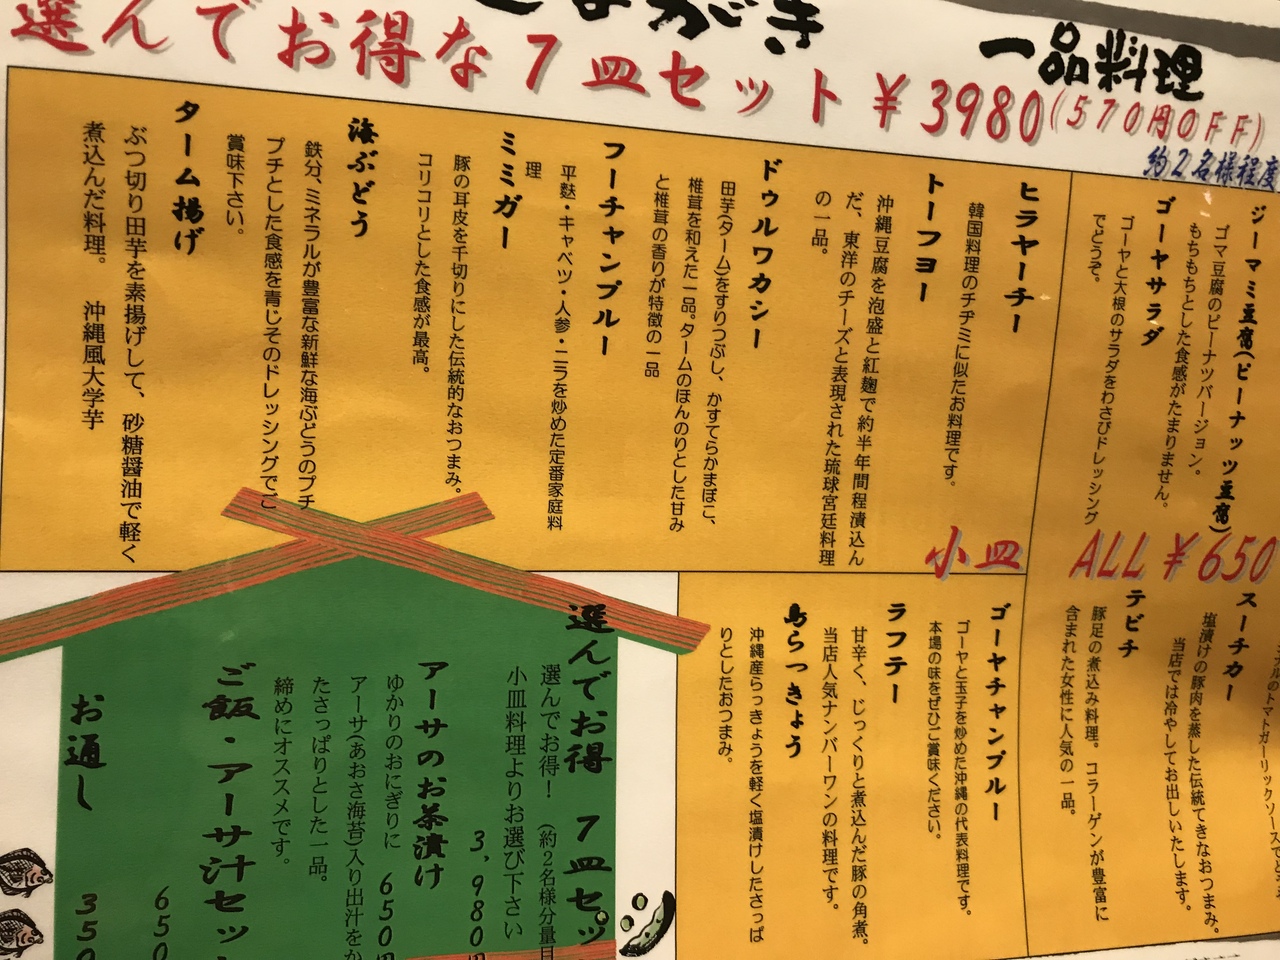 ながき
一品料理
選んでお得な7皿セット ¥3980(570円OFF)
約2名様程度
ジーマミ豆腐(ピーナッツ豆腐)
ゴマ豆腐のピーナツバージョン。
もちもちとした食感がたまりません。
ゴーヤサラダ
ゴーヤと大根のサラダをわさびドレッシング
でどうぞ。
ヒラヤーチー
韓国料理のチヂミに似たお料理です。
トーフヨー
沖縄豆腐を泡盛と紅麹で約半年間程漬込ん
だ、東洋のチーズと表現された琉球宮廷料理
の一品。
ドゥルワカシー
田芋(ターム)をすりつぶし、かすてらかまぼこ、
椎茸を和えた一品。タームのほんのりとした甘み
と椎茸の香りが特徴の一品
フーチャンプルー
平麩・キャベツ・人参・ニラを炒めた定番家庭料
理
ミミガー
豚の耳皮を千切りにした伝統的なおつまみ。
コリコリとした食感が最高。
海ぶどう
鉄分、ミネラルが豊富な新鮮な海ぶどうのプチ
プチとした食感を青じそのドレッシングでご
賞味下さい。
ターム揚げ
ぶつ切り田芋を素揚げして、砂糖醤油で軽く
煮込んだ料理。 沖縄風大学芋
小皿 ALL ¥650
のトマトガーリックソースで
スーチカー
塩漬けの豚肉を蒸した伝統てきなおつまみ。
当店では冷やしてお出しいたします。
テビチ
豚足の煮込み料理。コラーゲンが豊富に
含まれた女性に人気の一品。
ゴーヤチャンプルー
ゴーヤと玉子を炒めた沖縄の代表料理です。
本場の味をぜひご賞味ください。
ラフテー
甘辛く、じっくりと煮込んだ豚の角煮。
当店人気ナンバーワンの料理です。
島らっきょう
沖縄産らっきょうを軽く塩漬けしたさっぱ
りとしたおつまみ。
選んでお得 7皿セッ
選んでお得! (約2名様分量目
小皿料理よりお選び下さい
3,980円
アーサのお茶漬け
ゆかりのおにぎりに 650円
アーサ(あおさ海苔)入り出汁をか
たさっぱりとした一品。
締めにオススメです。
ご飯・アーサ汁セッ
650
お通し
350